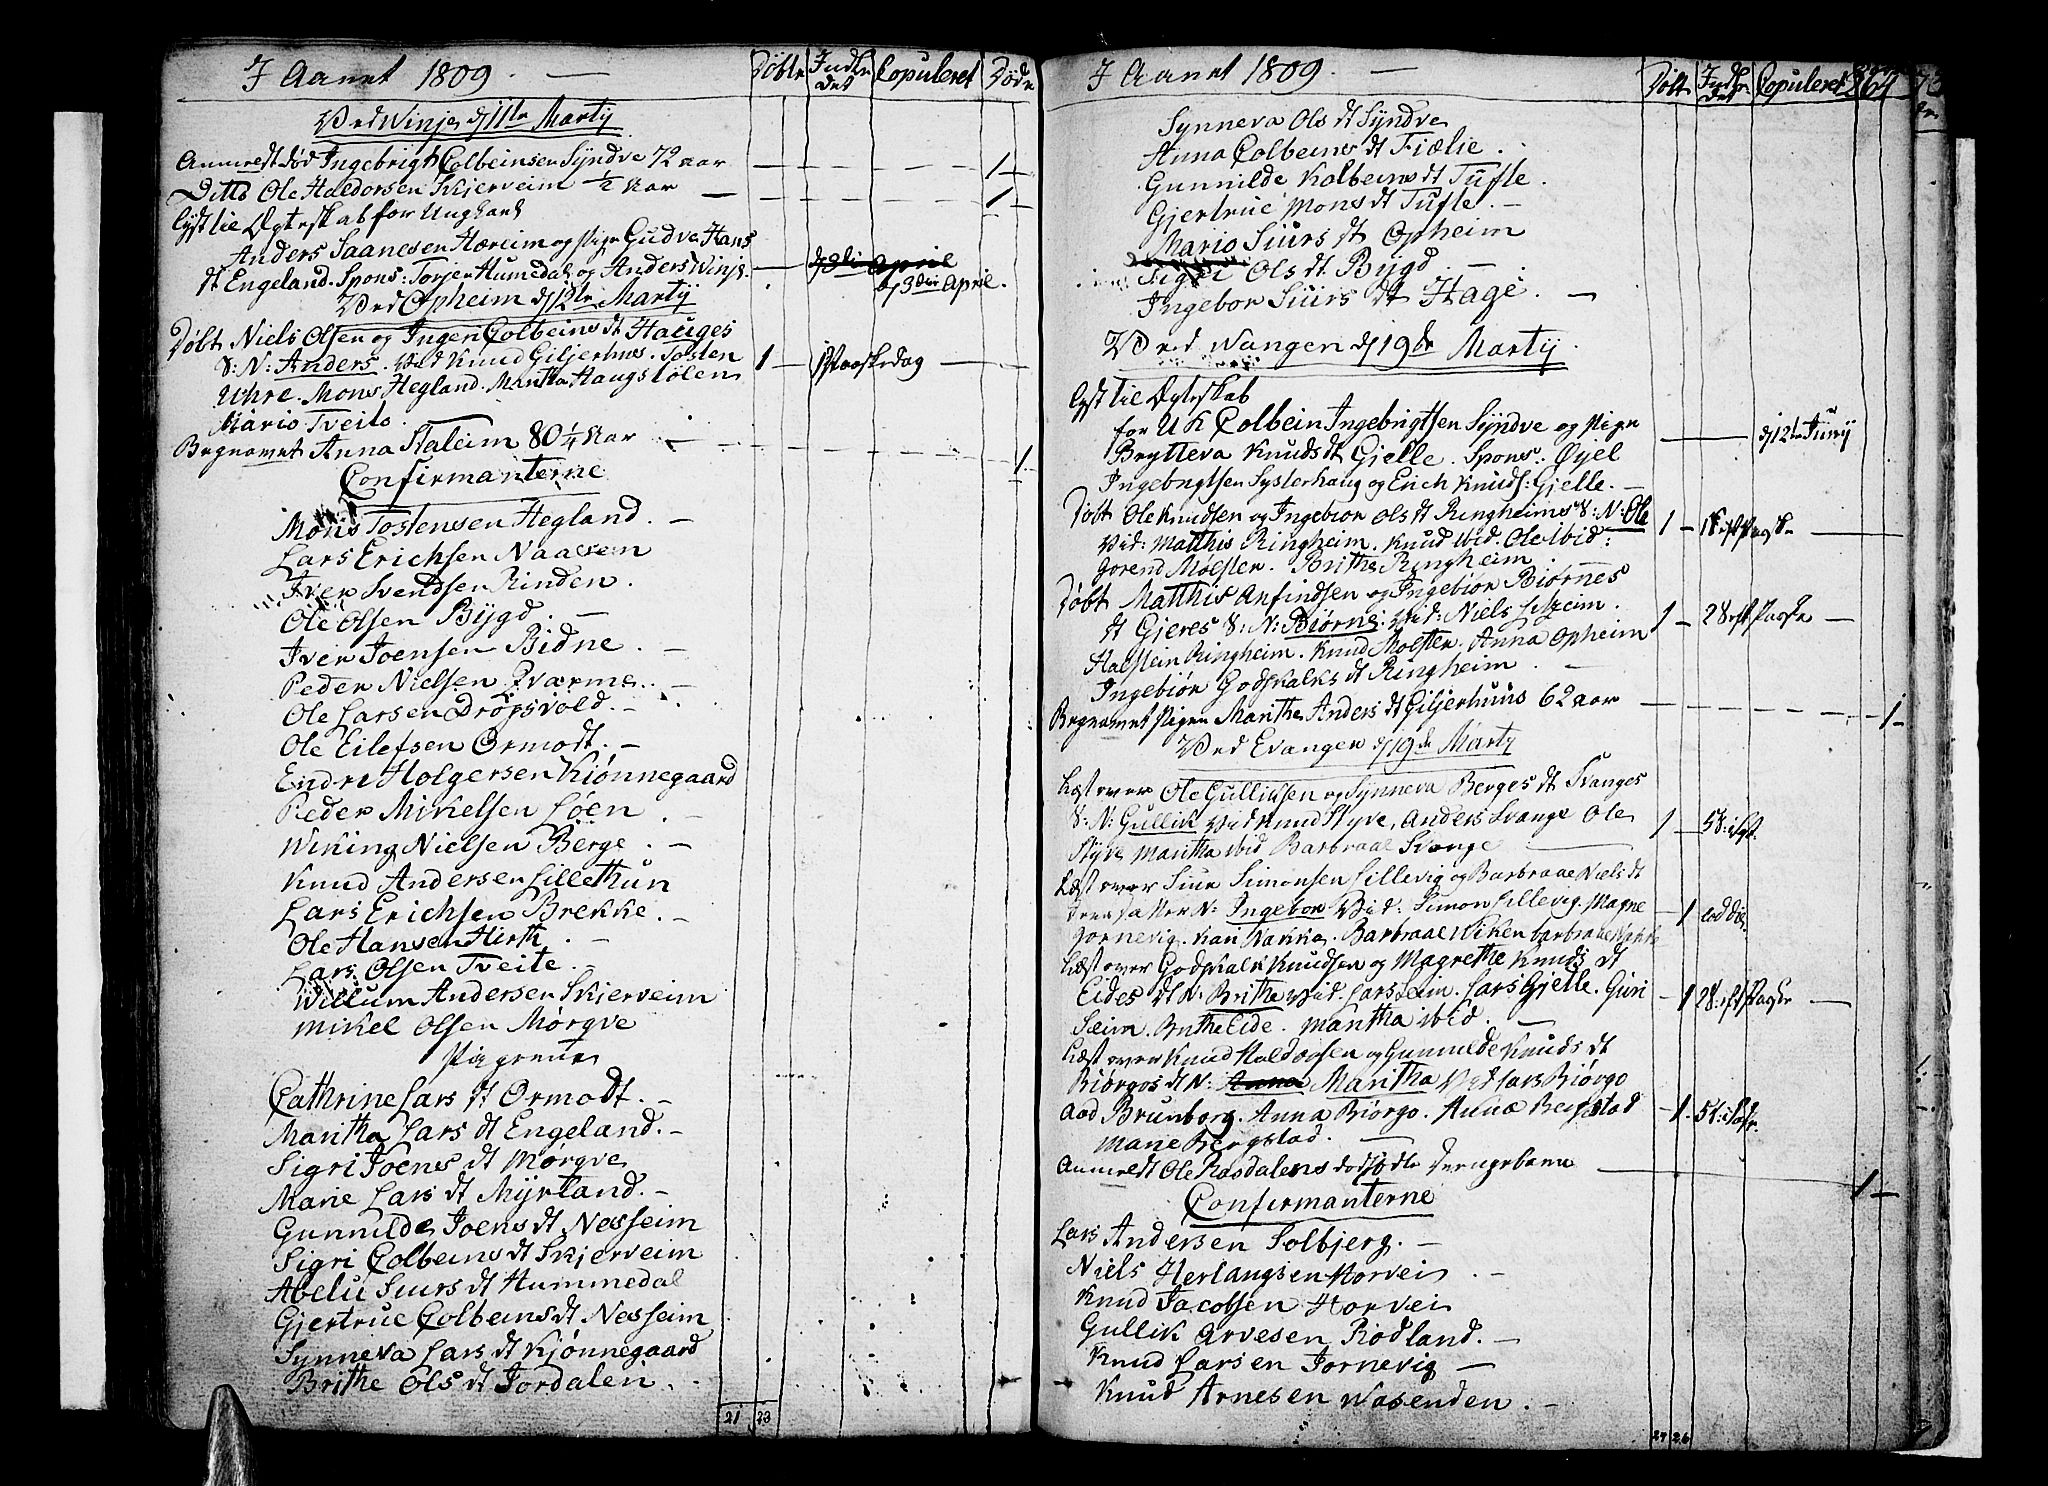 I Aaret 1809. — Døbte Indledet Copuleret Døde
Ved Winje d 11te Martij
Anmeldt død Ingebrigt Colbeinsen Syndve 72 aar — 1 —
Ditto Ole Haldorsen Skjerveim ½ Aar — 1 —
Lyst til Ægteskab for Ungkarl
Anders Saanesen Hæreim og Pige Gudve Hans
dt Engeland. Spons: Torjer Humedal og Anders Winje. — d 3die April
d 3die April.
Ved Opheim d 12te Martij
Døbt Niels Olsen og Inger Colbeins dt Hauges
S: N: Anders. Ved Knud Giljerhuus. Tosten 1 — Paaskedag —
Uhre. Mons Hegland. Maritha Haugstølen
Mario Tveito.
Begravet Anna Staleim 80 ¼ Aar — 1
Confirmanterne
Mons Tostensen Hegland. —
Lars Erichsen Naaesem
Iver Svendsen Rinden.
Ole Olsen Bÿgd. —
Iver Joensen Bidne. —
Peder Nielsen Qvarme. —
Ole Larsen Dröpsvold. —
Ole Eilefsen Ormodt. —
Endre Holgersen Kiönnegaard
Peder Mikelsen Löen. —
Wiking Nielsen Berge. —
Knud Andersen Lillethun
Lars Erichsen Brekke. —
Ole Hansen Hirth. —
Lars Olsen Tveite. —
Willum Andersen Skjerveim
Mikel Olsen Mørqve
Pigerne
Cathrine Lars dt Ormodt. —
Maritha Lars dt Engeland. —
Sigri Joens dt Mørqve
Marie Lars dt Mÿrland. —
Gunnilde Joens dt Nesseim
Sigri Colbeins dt Skjerveim
Abelu Siurs dt Hummedal
Gjertrue Colbeins dt Nesseim
Synneva Lars dt Kjönnegaard
Brithe Ols dt Jordalen.
21 23
I Aaret 1809. — Døbte Indledet Copuleret
Synneva Ols dt Syndve
Anna Colbeins dt Fiælie.
Gunnilde Kolbeins dt Tufte.
Gjertrue Mons dt Tufte. —
Mario Siurs dt Opheim
Sigri Ols dt Bÿgd. —
Ingebor Siurs dt Hage. —
Ved Wangen d 19de Martij.
Lyst til Ægteskab
for U K Colbein Ingebrigtsen Syndve og Pige
Brytteva Knuds dt Gjelle. Spons: Øyel — d 12te Junij
Ingebrigtsen Systerhaug og Erich Knuds: Gjelle. —
Døbt Ole Knudsen og Ingebior Ols dt Ringheims S: N: Ole
Ved: Matthis Ringheim. Knud ibid. Ole ibid: 1 —
Gorend Mølster. Brithe Ringheim
Døbt Matthis Anfindsen og Ingebior Biørnes
dt Gjeres S: N: Biørne. Ved: Niels Lydzeim. 1 —
Halstein Ringheim. Knud Mølster. Anna Opheim
Ingebiör Godskalks dt Ringheim. —
Begravet Pigen Marithe Anders dt Giljerhuus 62 aar — 1 —
Ved Evanger d 19de Martij
Læst over Ole Gulliksen og Synneva Berges dt Evanges
S: N: Gullik Ved Knud Styve, Anders Evange Ole 1 —
Styve Maritha ibid Barbraae Evange —
Læst over Siur Simonsen Lillevig og Barbraae Niels dt
N: Ingebor Ved: Simon Lillevig. Magne — 1
Jornevig. Kari Nakka. Barbraae Wiken
Læst over Godskalk Knudsen og Magrethe Knuds dt
Eides dt N: Britha Ved. Lars Seim. Lars Gjelle. Guri — 1
Seim. Brithe Eide. Maritha ibid. —
Læst over Knud Haldorsen og Gunnilde Knuds dt
Biörgos dt N: Anna Maritha Ved Lars Biörgo
Aad Brunborg. Anna Biörgo. Anna Bergstad — 1.
Marie Bergstad. —
Anmeldt Ole Rasdalens dødfødte Drengebarn — 1 —
Confirmanterne
Lars Andersen Solbjerg. —
Niels Herlaugsen Horvei. —
Knud Jacobsen Horvei
Gullik Arvesen Rödland. —
Knud Larsen Jornevig —
Knud Arnesen Wasenden. —
24 26